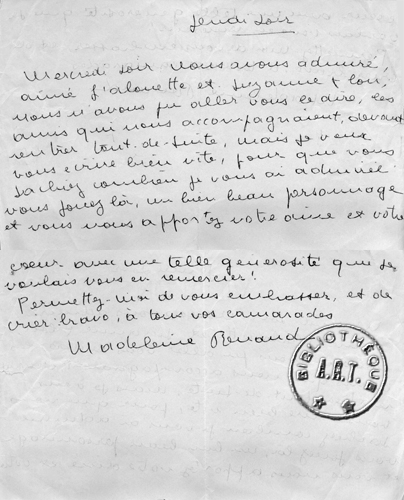 Jeudi soir
Mercredi soir nous avons admiré,
aimé l'alouette et Suzanne Flon,
nous n'avons pu aller vous le dire, les
amis qui nous accompagnaient, devant
rentrer tout de suite, mais je veux
vous écrire bien vite, pour que vous
sachiez combien je vous ai admirée
vous jouez là, un bien beau personnage
et vous nous apportez votre âme et votre
coeur avec une telle generosité que je
voulais vous en remercier!
Permettez-moi de vous embrasser, et de
crier bravo, à tous vos camarades
Madeleine Renaud
BIBLIOTHÈQUE
A.R.T.